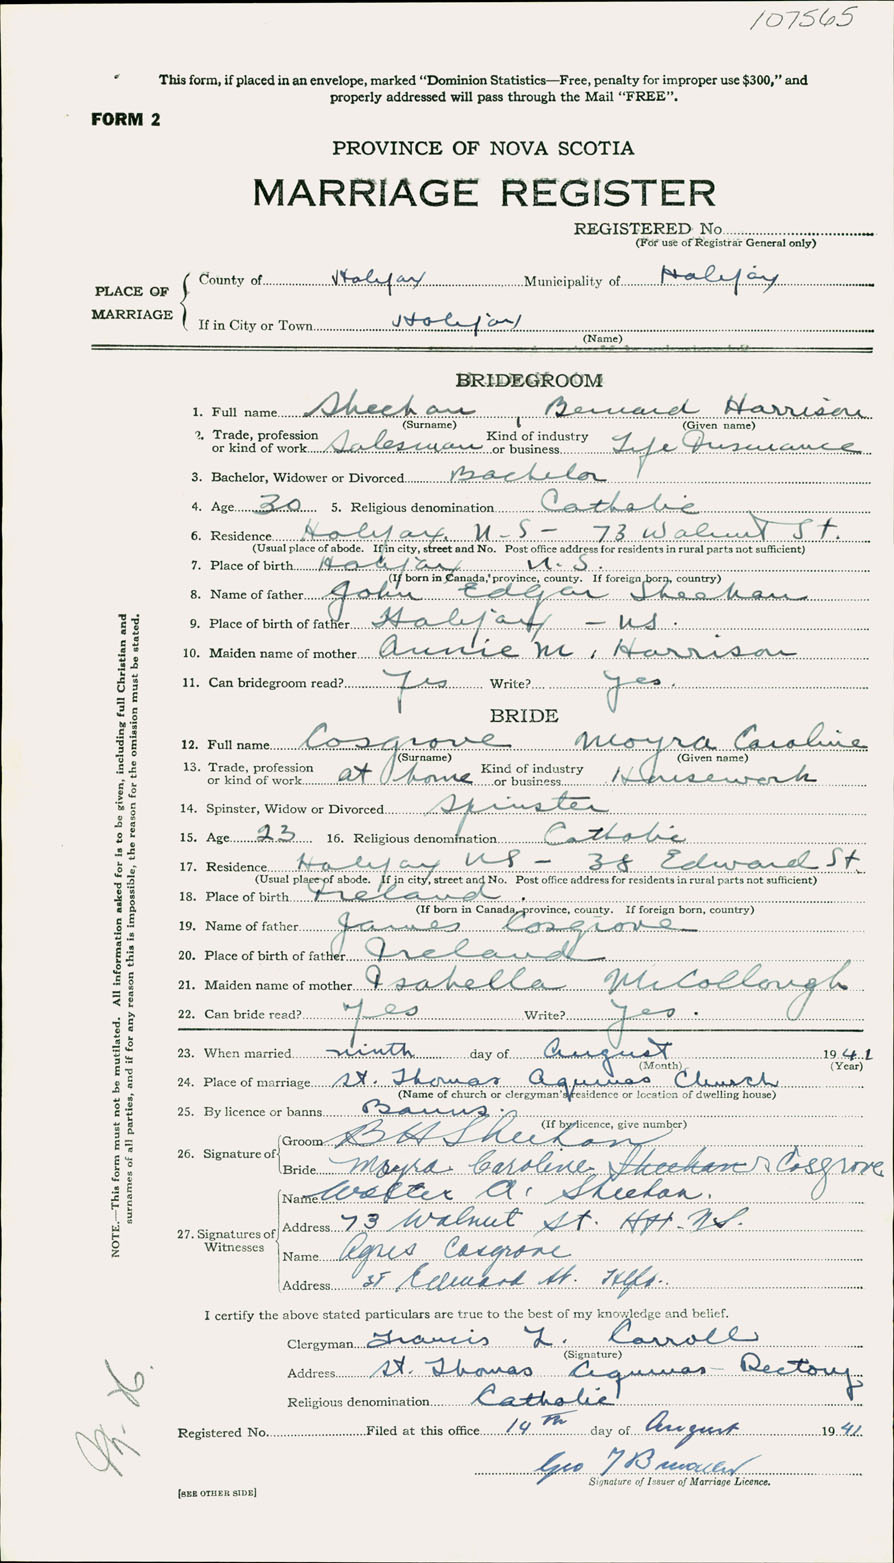 107565
This form, if placed in an envelope, marked "Dominion Statistics—Free, penalty for improper use $300," and
properly addressed will pass through the Mail "FREE".
FORM 2
PROVINCE OF NOVA SCOTIA
MARRIAGE REGISTER
REGISTERED No.
(For use of Registrar General only)
PLACE OF MARRIAGE
County of Halifax Municipality of Halifax
If in City or Town Halifax
(Name)
BRIDEGROOM
1. Full name Sheehan Bernard Harrison
(Surname) (Given name)
2. Trade, profession or kind of work Salesman Kind of industry or business Life Insurance
3. Bachelor, Widower or Divorced Bachelor
4. Age 30 5. Religious denomination Catholic
6. Residence Halifax, N-S- 73 Walnut St.
(Usual place of abode. If in city, street and No. Post office address for residents in rural parts not sufficient)
7. Place of birth Halifax N.S.
(If born in Canada, province, county. If foreign born, country)
8. Name of father John Edgar Sheehan
9. Place of birth of father Halifax - NS.
10. Maiden name of mother Annie M. Harrison
11. Can bridegroom read? Yes Write? Yes.
BRIDE
12. Full name Cosgrove Moyra Caroline
(Surname) (Given name)
13. Trade, profession or kind of work at home Kind of industry or business Housework
14. Spinster, Widow or Divorced Spinster
15. Age 23 16. Religious denomination Catholic
17. Residence Halifax NS - 38 Edward St.
(Usual place of abode. If in city, street and No. Post office address for residents in rural parts not sufficient)
18. Place of birth Ireland.
(If born in Canada, province, county. If foreign born, country)
19. Name of father James Cosgrove
20. Place of birth of father Ireland
21. Maiden name of mother Isabella McCollough
22. Can bride read? Yes Write? Yes.
23. When married ninth day of August 1941
(Month) (Year)
24. Place of marriage St. Thomas Aquinas Church
(Name of church or clergyman's residence or location of dwelling house)
25. By licence or banns Banns.
(If by licence, give number)
26. Signature of Groom B H Sheehan
Bride Moyra Caroline Sheehan Cosgrove
27. Signatures of Witnesses
Name Walter A. Sheehan.
Address 73 Walnut St. Hfx. N.S.
Name Agnes Cosgrove
Address Edward St. Hlfx.
I certify the above stated particulars are true to the best of my knowledge and belief.
Clergyman Francis L. Carroll
(Signature)
Address St. Thomas Aquinas- Rectory
Religious denomination Catholic
Registered No. Filed at this office 14th day of August 1941
Geo
Signature of Issuer of Marriage Licence.
[SEE OTHER SIDE]
NOTE.—This form must not be mutilated. All information asked for is to be given, including full Christian and
surnames of all parties, and if for any reason this is impossible, the reason for the omission must be stated.